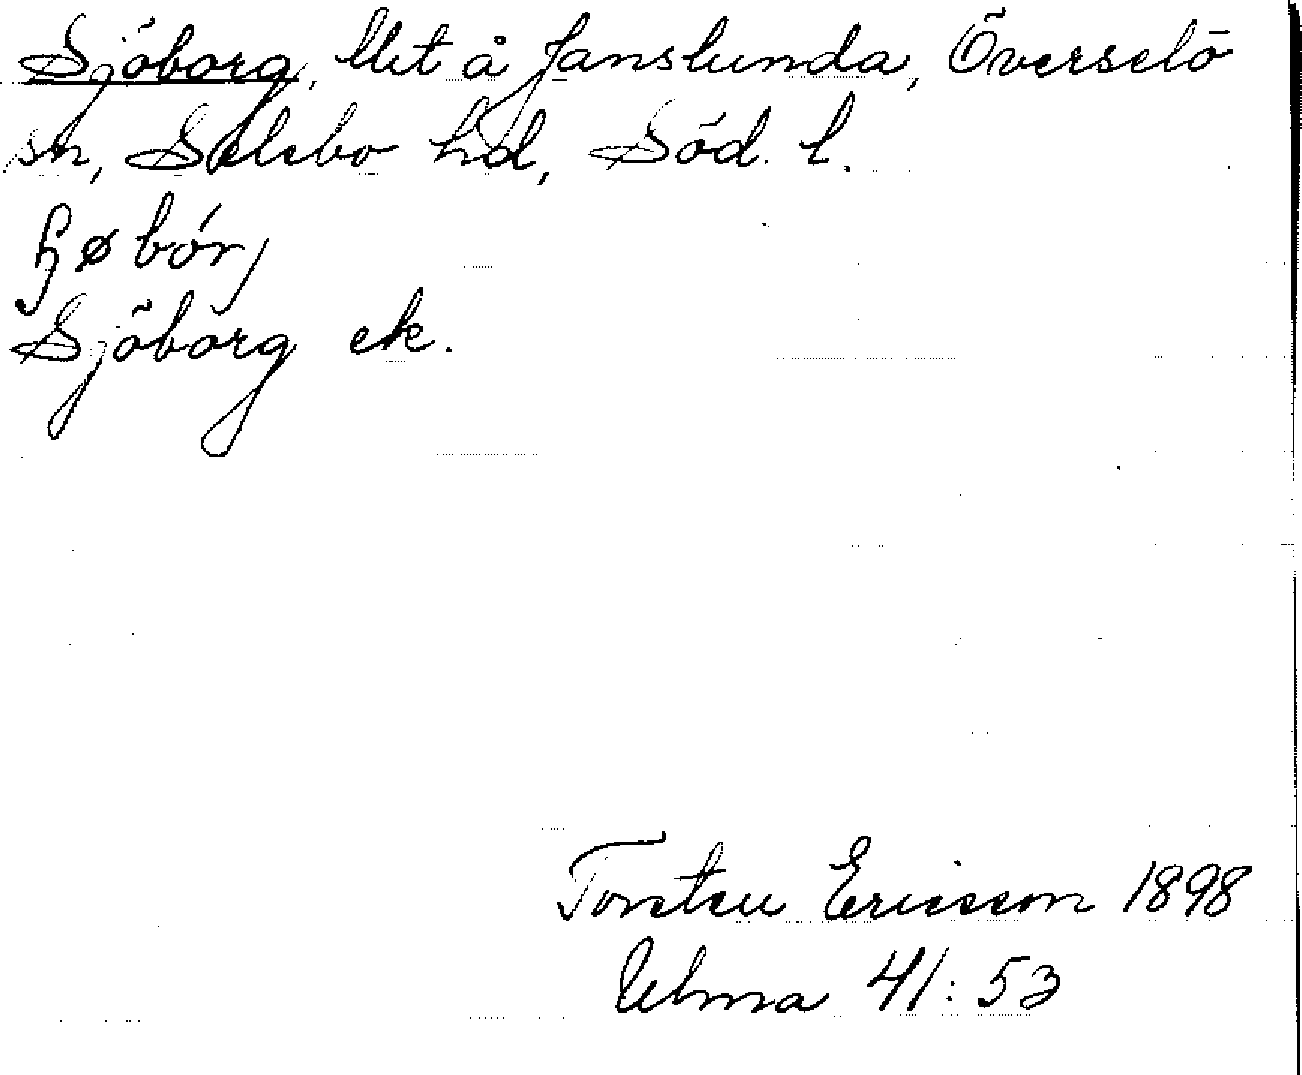 Sjöborg, lht å Janslunda, Överselö
sn, Selebo hd, Söd. l.
Sjöborg ek.
Torsten Ericsson 1898
Ulma 41:53